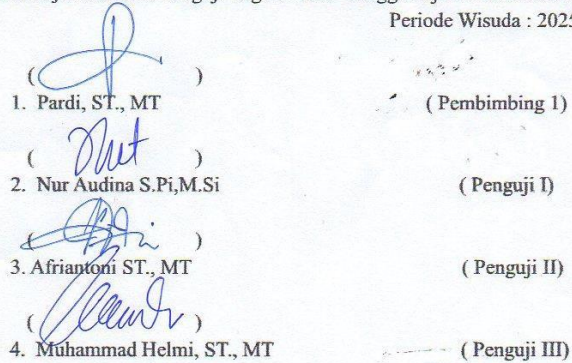 Periode Wisuda : 2025
( )
1. Pardi, ST., MT ( Pembimbing 1)
( )
2. Nur Audina S.Pi,M.Si ( Penguji I)
( )
3. Afriantoni ST., MT ( Penguji II)
( )
4. Muhammad Helmi, ST., MT ( Penguji III)